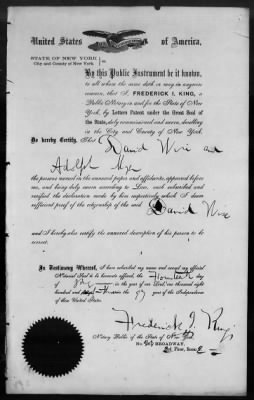 United States of America,
STATE OF NEW YORK
City and County of New York ss
By this Public Instrument be it known,
to all whom the same doth or may in anywise
concern, that I, FREDERICK I. KING, a
Public Notary in and for the State of New
York, by Letters Patent under the Great Seal of
the State, duly commissioned and sworn, dwelling
in the City and County of New York.
Do hereby Certify, That David and
Adolph
the persons named in the annexed paper and affidavits, appeared before
me, and being duly sworn according to Law, each subscribed and
verified the declaration made by him respectively which I deem
sufficient proof of the citizenship of the said David
and I hereby also certify the annexed description of his person to be
correct.
In Testimony Whereof, I have subscribed my name and caused my official
Notarial Seal to be hereunto affixed, the day
of in the year of our Lord, one thousand eight
hundred and in the year of the Independence
of these United States.
Frederick I. King
Notary Public of the State of New York
BROADWAY,